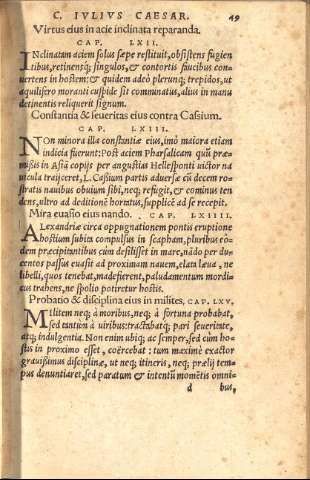 C. IVLIVS CAESAR. 49
Virtus eius in acie inclinata reparanda.
CAP. LXII.
INclinatam aciem solus sæpe restituit, obsistens fugien
tibus, retinensq́; singulos, & contortis faucibus con-
uertens in hostem: & quidem adeò plerunq; trepidos, ut
aquilifero moranti cuspide sit comminatus, alius in manu
detinentis reliquerit signum.
Constantia & seueritas eius contra Cassium.
CAP. LXIII.
NOn minora illa constantiæ eius, imò maiora etiam
indicia fuerunt: Post aciem Pharsalicam quũ præ-
mißis in Asiã copijs per angustias Hellesponti uectoria na
uicula traijceret, L. Cassium partis aduersæ cũ decem ro-
stratis nauibus obuium sibi, neq; refugit, & cominus ten
dens, ultro ad deditionẽ hortatus, supplicẽ ad se recepit.
Mira euasio eius nando. CAP. LXIIII.
ALexandriæ circa oppugnationem pontis eruptione
hostium subita compulsus in scapham, pluribus eò-
dem præcipitantibus cùm desilisset in mare, nãdo per du
centos passus euasit ad proximam nauem, elata læua, ne
libelli, quos tenebat, madefierent, paludamentum mordi-
cus trahens, ne spolio potiretur hostis.
Probatio & disciplina eius in milites, CAP. LXV,
MIlitem neq; à moribus, neq; à fortuna probabat,
sed tantùm à uiribus: tractabatq; pari seueritate,
atq; indulgentia. Non enim ubiq; ac semper, sed cùm ho-
stis in proximo esset, coërcebat: tum maximè exactor
grauißimus disciplinæ, ut neq; itineris, neq; prælij tem-
pus denuntiaret, sed paratum & intentũ momẽtis omni-
d bus,